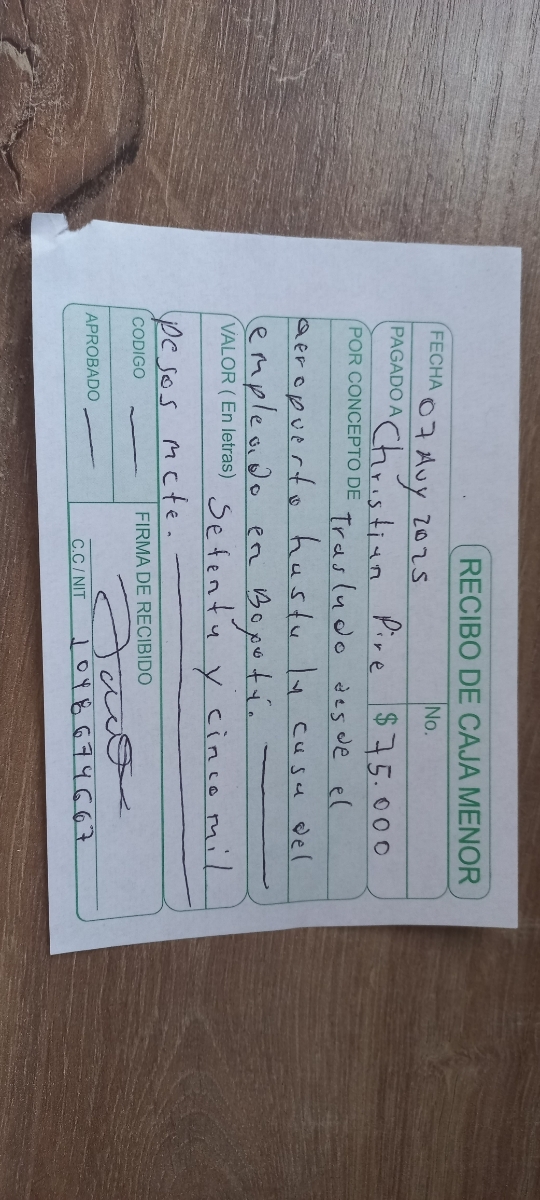 RECIBO DE CAJA MENOR
FECHA 07 Auy 2025 No.
PAGADO A Christian Pire $ 75.000
POR CONCEPTO DE Traslado desde el
aeropuerto hasta la casa del
empleado en Bogotá.
VALOR ( En letras) Setenta y cinco mil
pesos mcte.
CODIGO —
APROBADO —
FIRMA DE RECIBIDO
C.C / NIT 1098674667